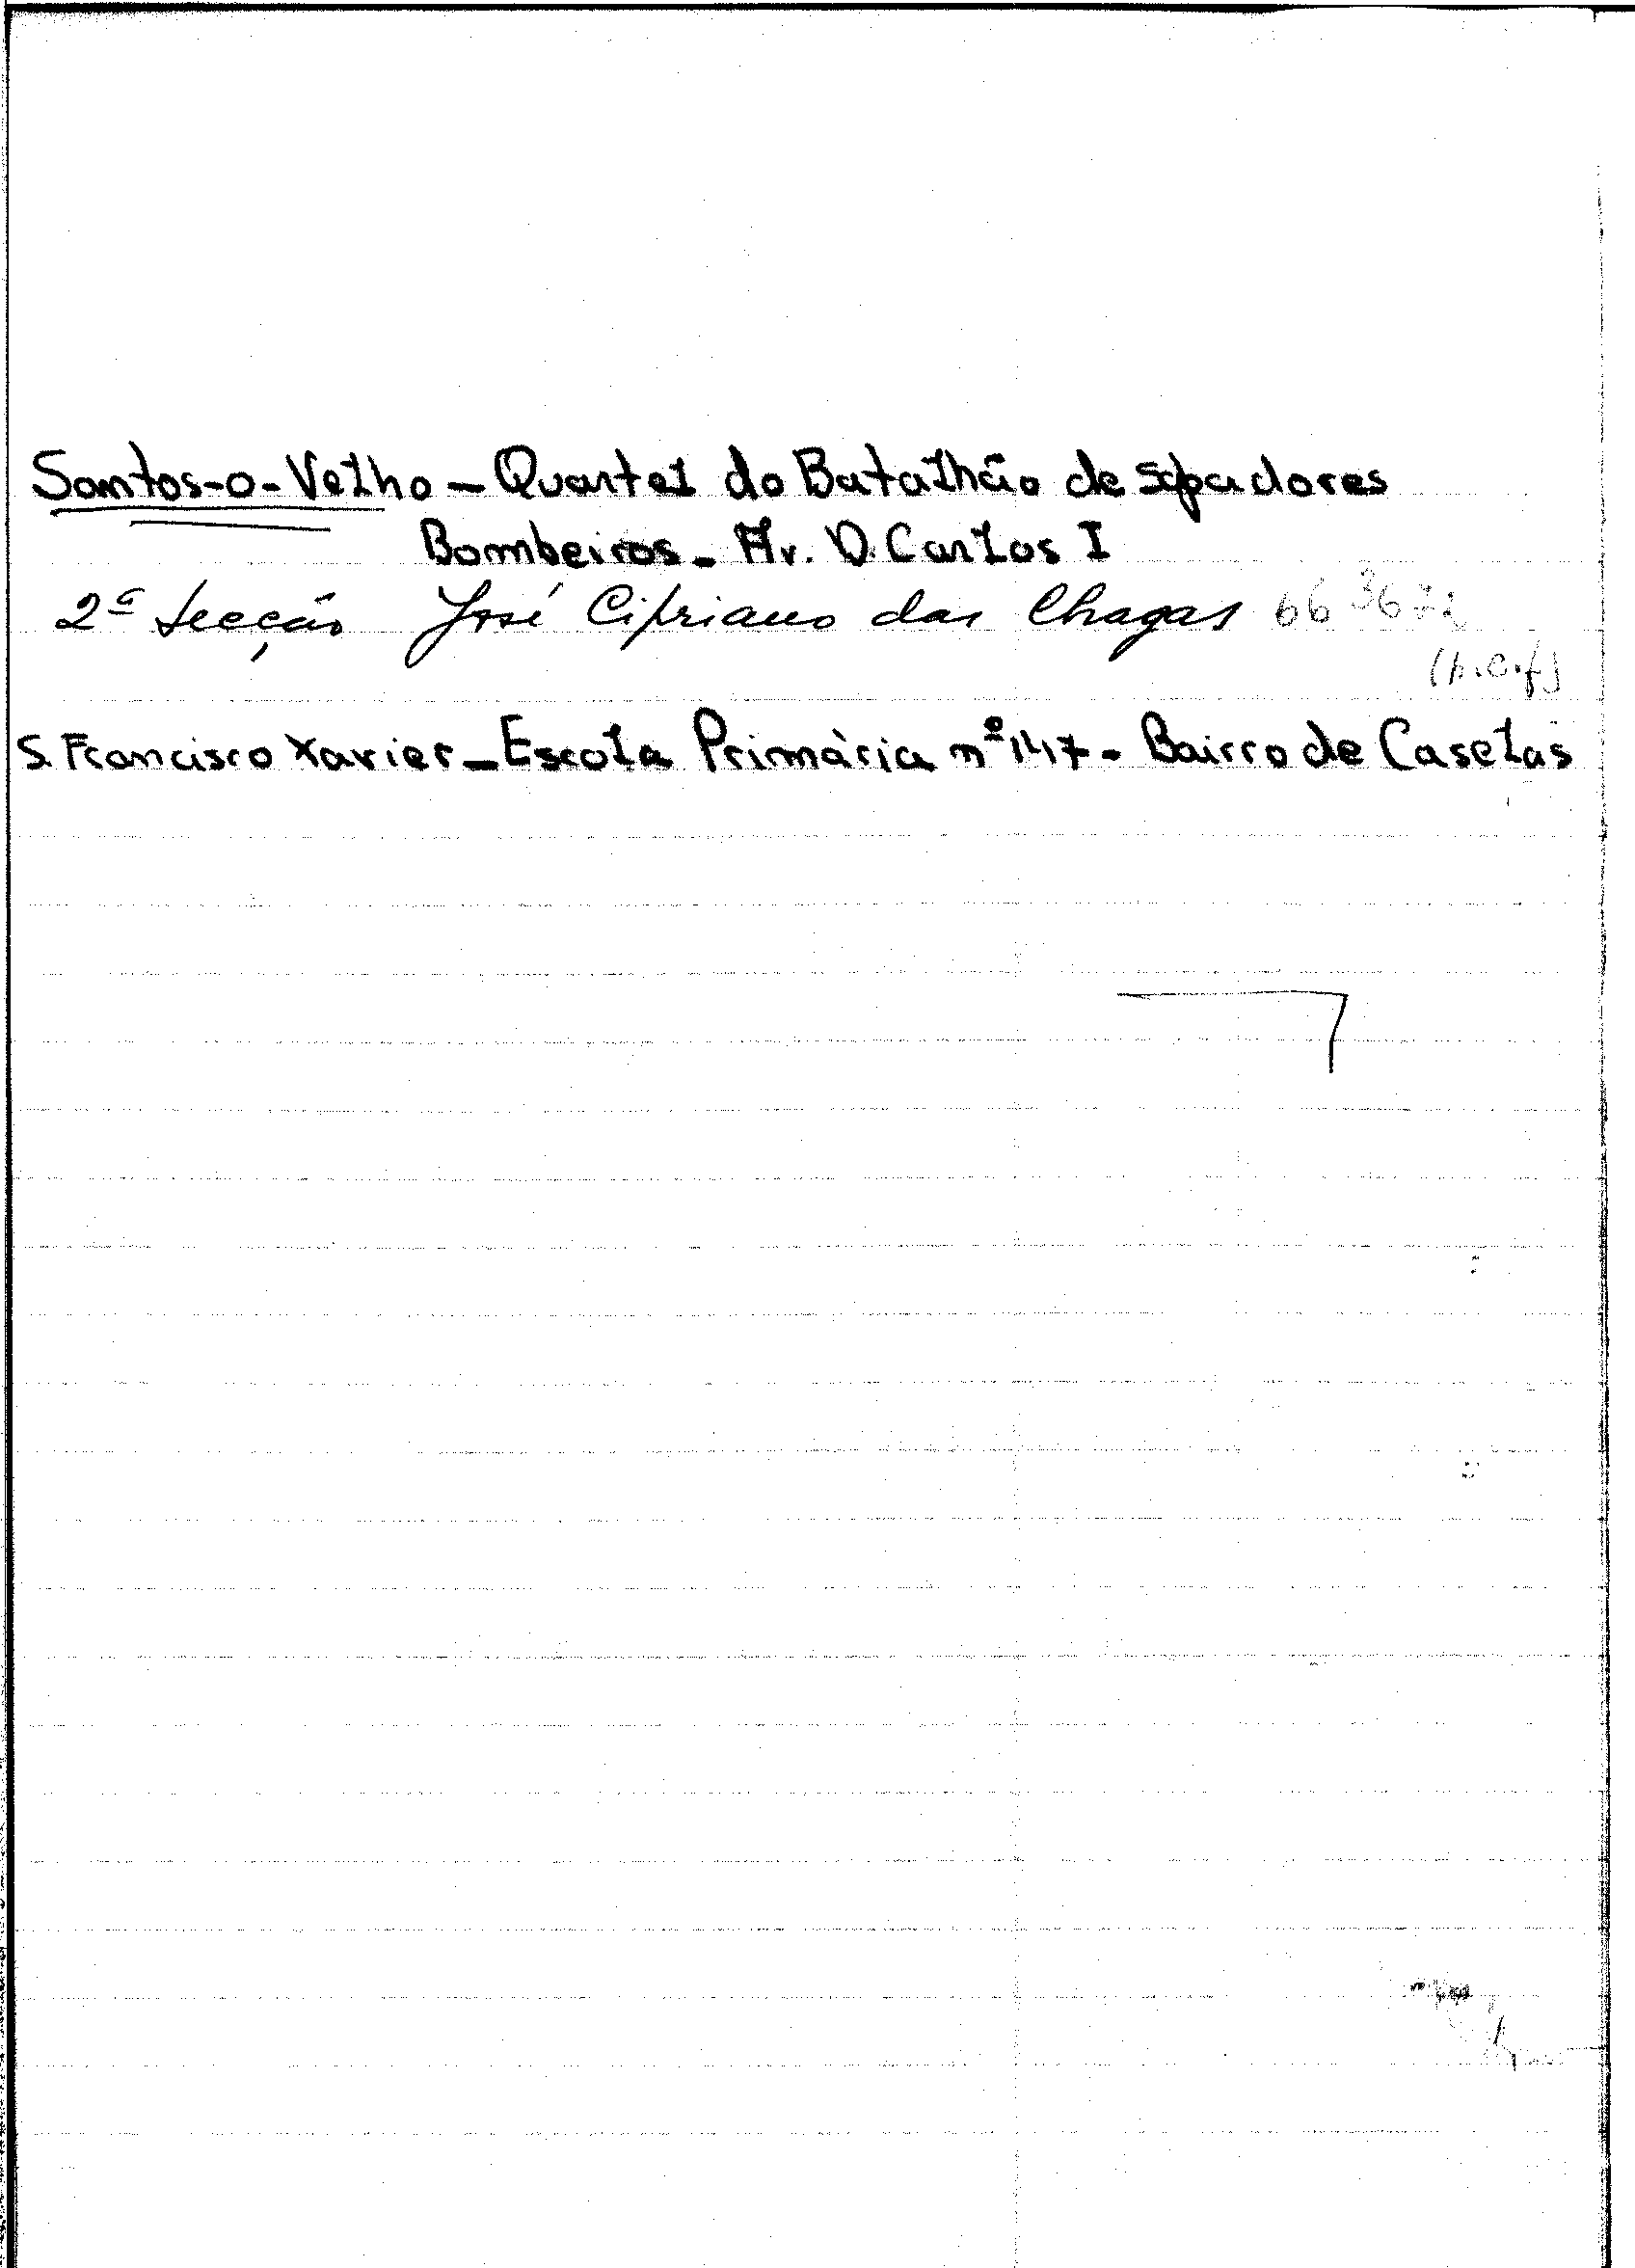 Santos-o-Velho - Quartel do Batalhão de Sapadores
Bombeiros - Av. D. Carlos I
2ª Secção José Cipriano das Chagas 663672
S. Francisco Xavier - Escola Primária nº 147 - Bairro de Caselas